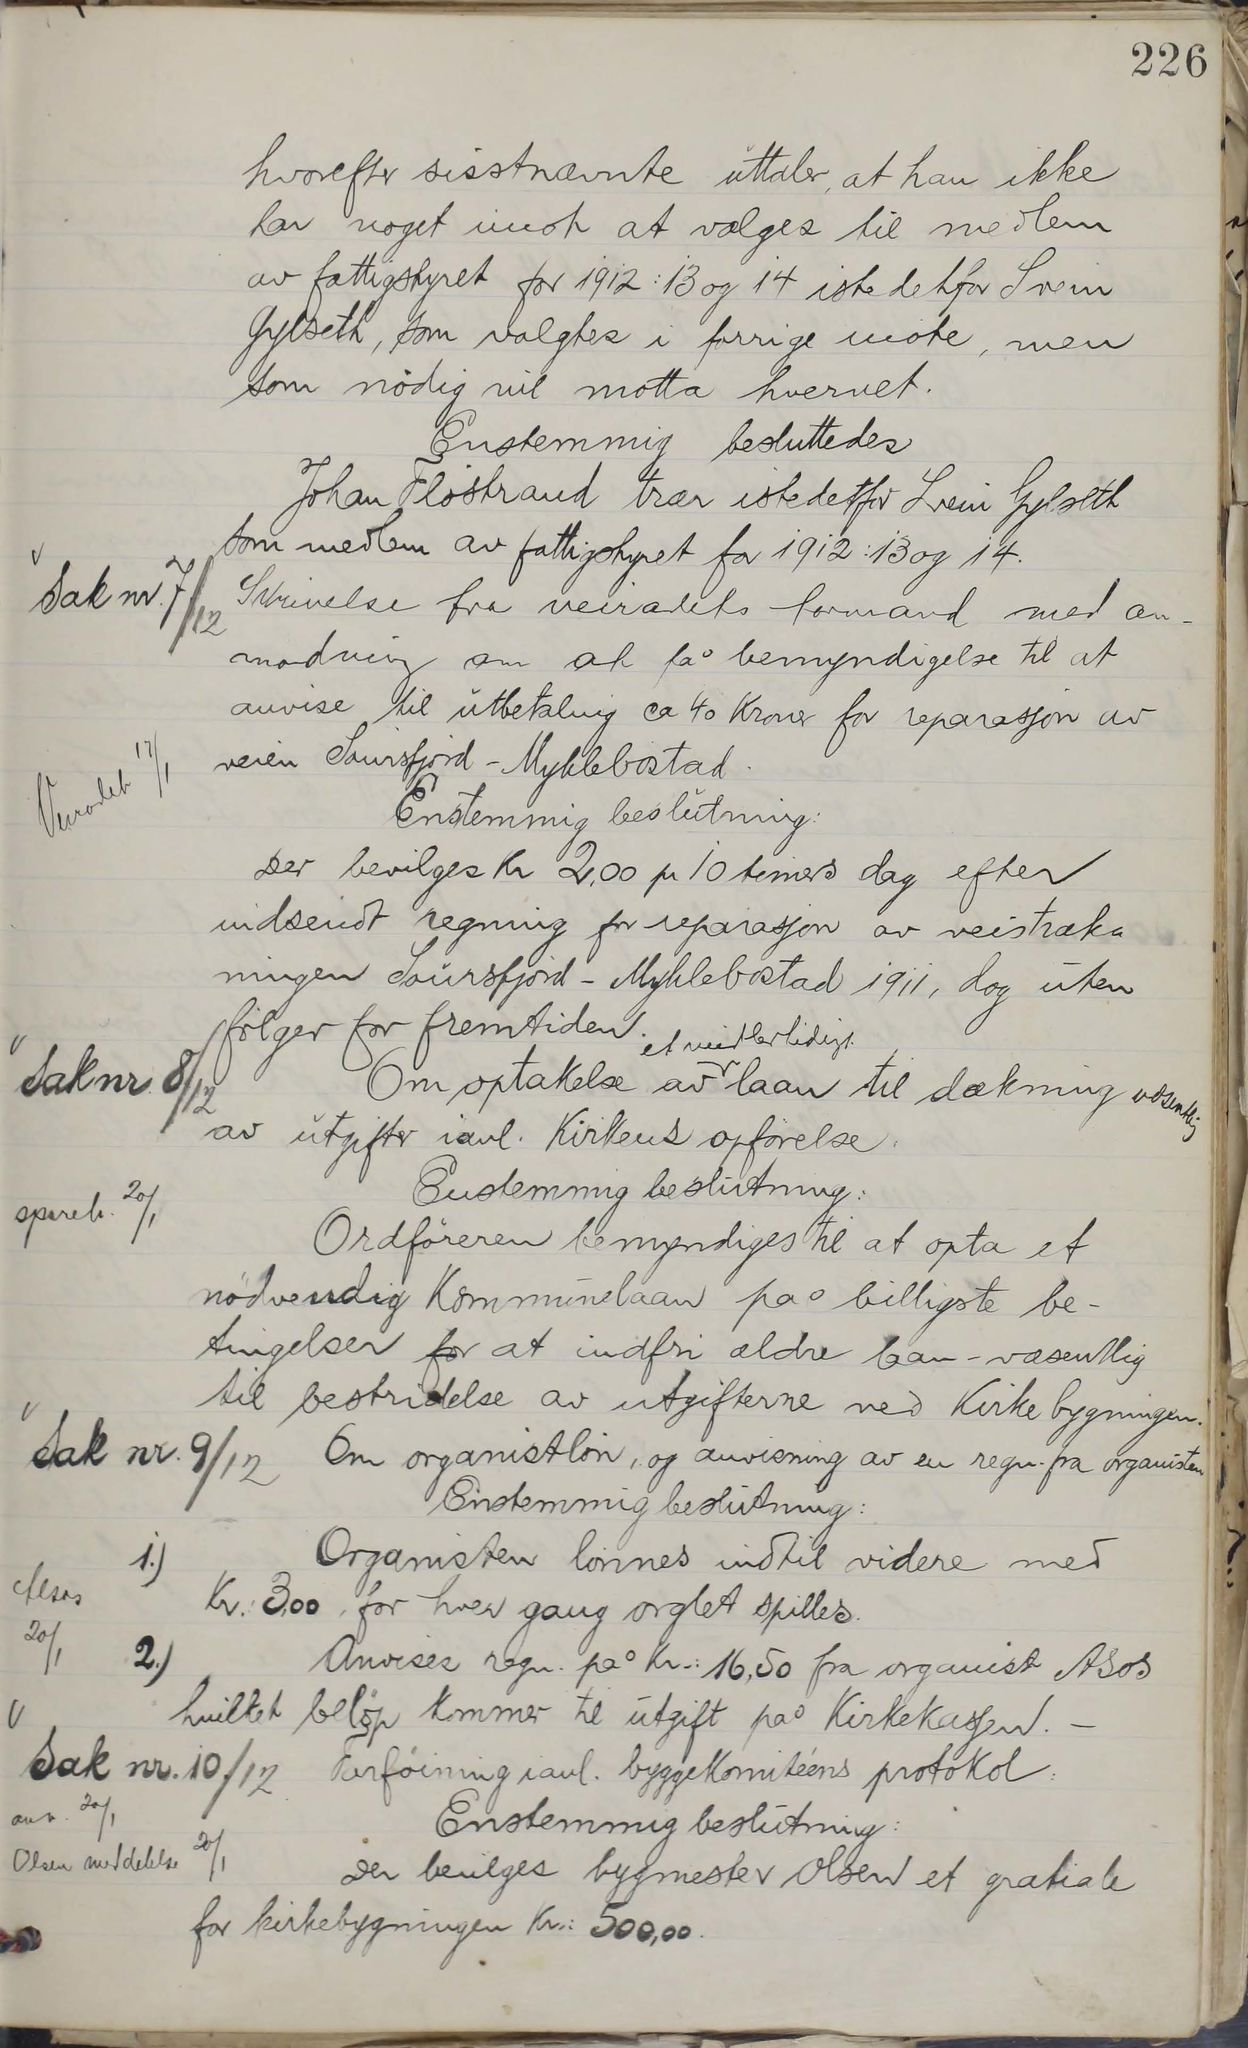 226
hvorefter sisstnævnte uttaler, at han ikke
har noget imot at vælges til medlem
av fattigstyret for 1912: 13 og 14 istedetfor Svein
Gylseth, som valgtes i forrige møte, men
som nødig vil motta hvervet.
Enstemmig besluttedes
Johan Fløstrand trær istedetfor Svein Gylseth
som medlem av fattigstyret for 1912: 13 og 14.
Sak nr. 7/12 Skrivelse fra veirådets formand med an-
modning om at få bemyndigelse til at
anvise til utbetaling ca 40 Kroner for reparasjon av
veien Sørsfjord - Myklebostad.
Veirådet 17/1
Enstemmig beslutning:
Der bevilges Kr 2,00 pr 10 timers dag efter
indsendt regning for reparasjon av veistræk-
ningen Sørsfjord - Myklebostad 1911, dog uten
følger for fremtiden.
et midlertidigt
Sak nr. 8/12 Om optakelse av laan til dækning væsentlig
av utgifter i anl. Kirkens opførelse.
Enstemmig beslutning:
spareb. 20/1
Ordføreren bemyndiges til at opta et
nødvendig Kommunelaan på billigste be-
tingelser for at indfri ældre laan - væsentlig
til bestridelse av utgifterne ved Kirkebygningen.
Sak nr. 9/12 Om organistløn, og anvisning av en regn. fra organisten
Enstemmig beslutning:
1.) Organisten lønnes indtil videre med
Kr.: 3,00, for hver gang orglet spilles.
20/1
2.) Anvises regn. på Kr.: 16,50 fra organist Asos
hvilket beløp kommer til utgift på Kirkekassen. -
Sak nr. 10/12 Forføining i anl. byggekomitéens protokol:
anv. 20/1
Enstemmig beslutning:
Olsen meddelelse 20/1
Der bevilges bygmester Olsen et gratiale
for kirkebygningen Kr.: 500,00.